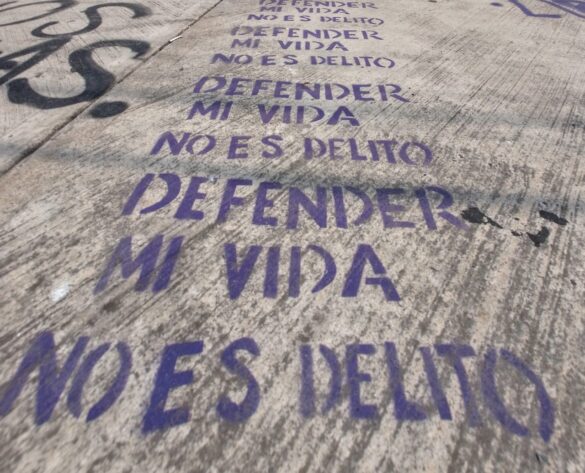 DEFENDER
MI VIDA
NO ES DELITO
DEFENDER
MI VIDA
NO ES DELITO
DEFENDER
MI VIDA
NO ES DELITO
DEFENDER
MI VIDA
NO ES DELITO